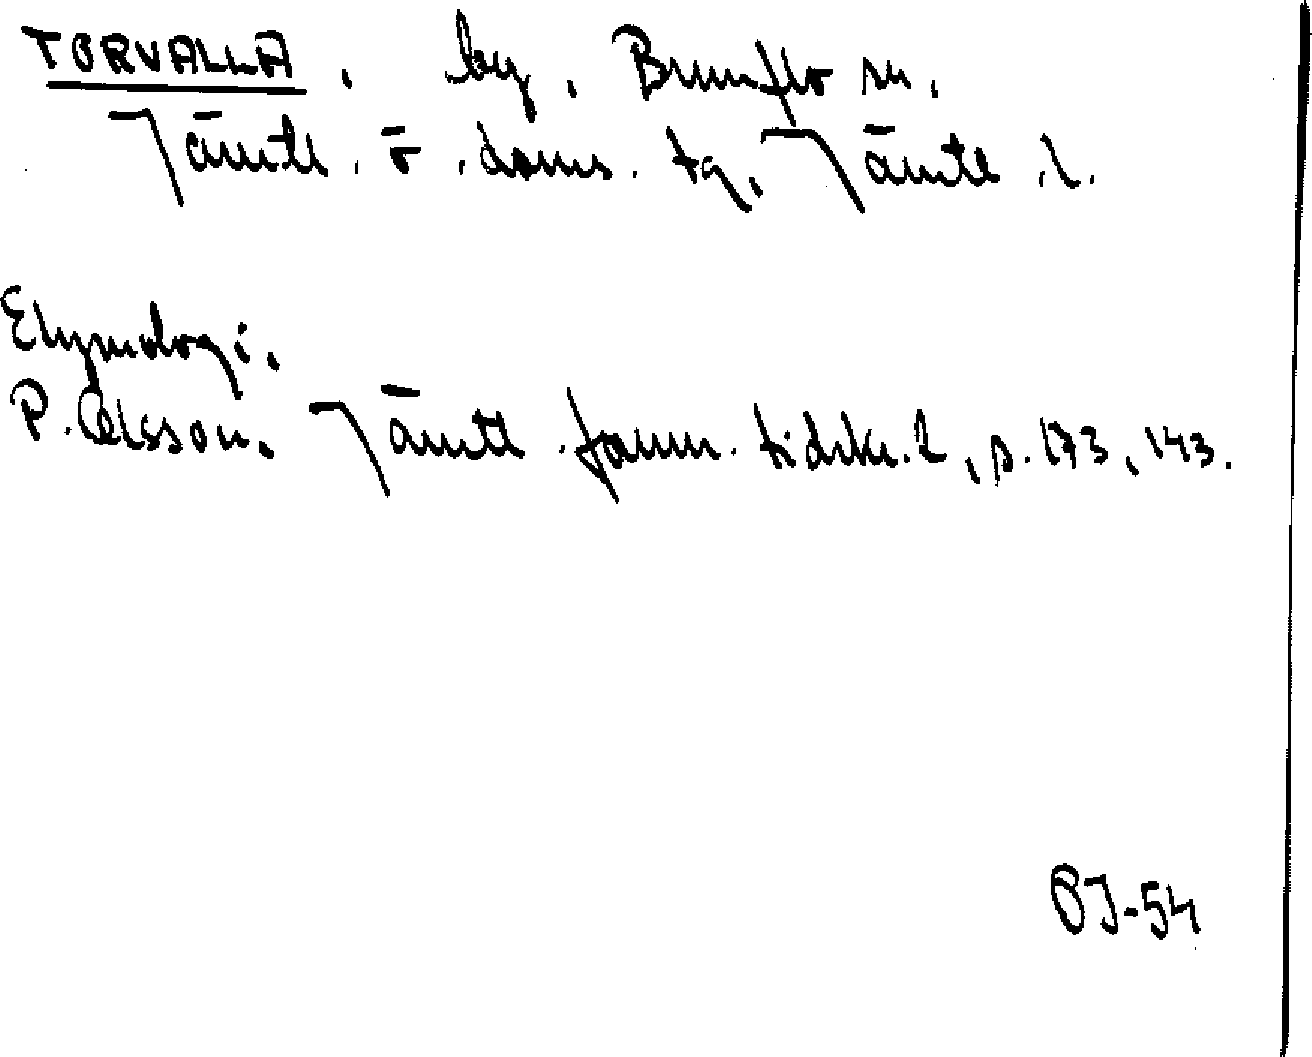 TORVALLA, by, Brunflo sn,
Jämtl. ö. doms. tg, Jämtl. l.
Etymologi.
P. Olsson. Jämtl. fornm. tidskr. 2, s. 173, 143.
BJ-54